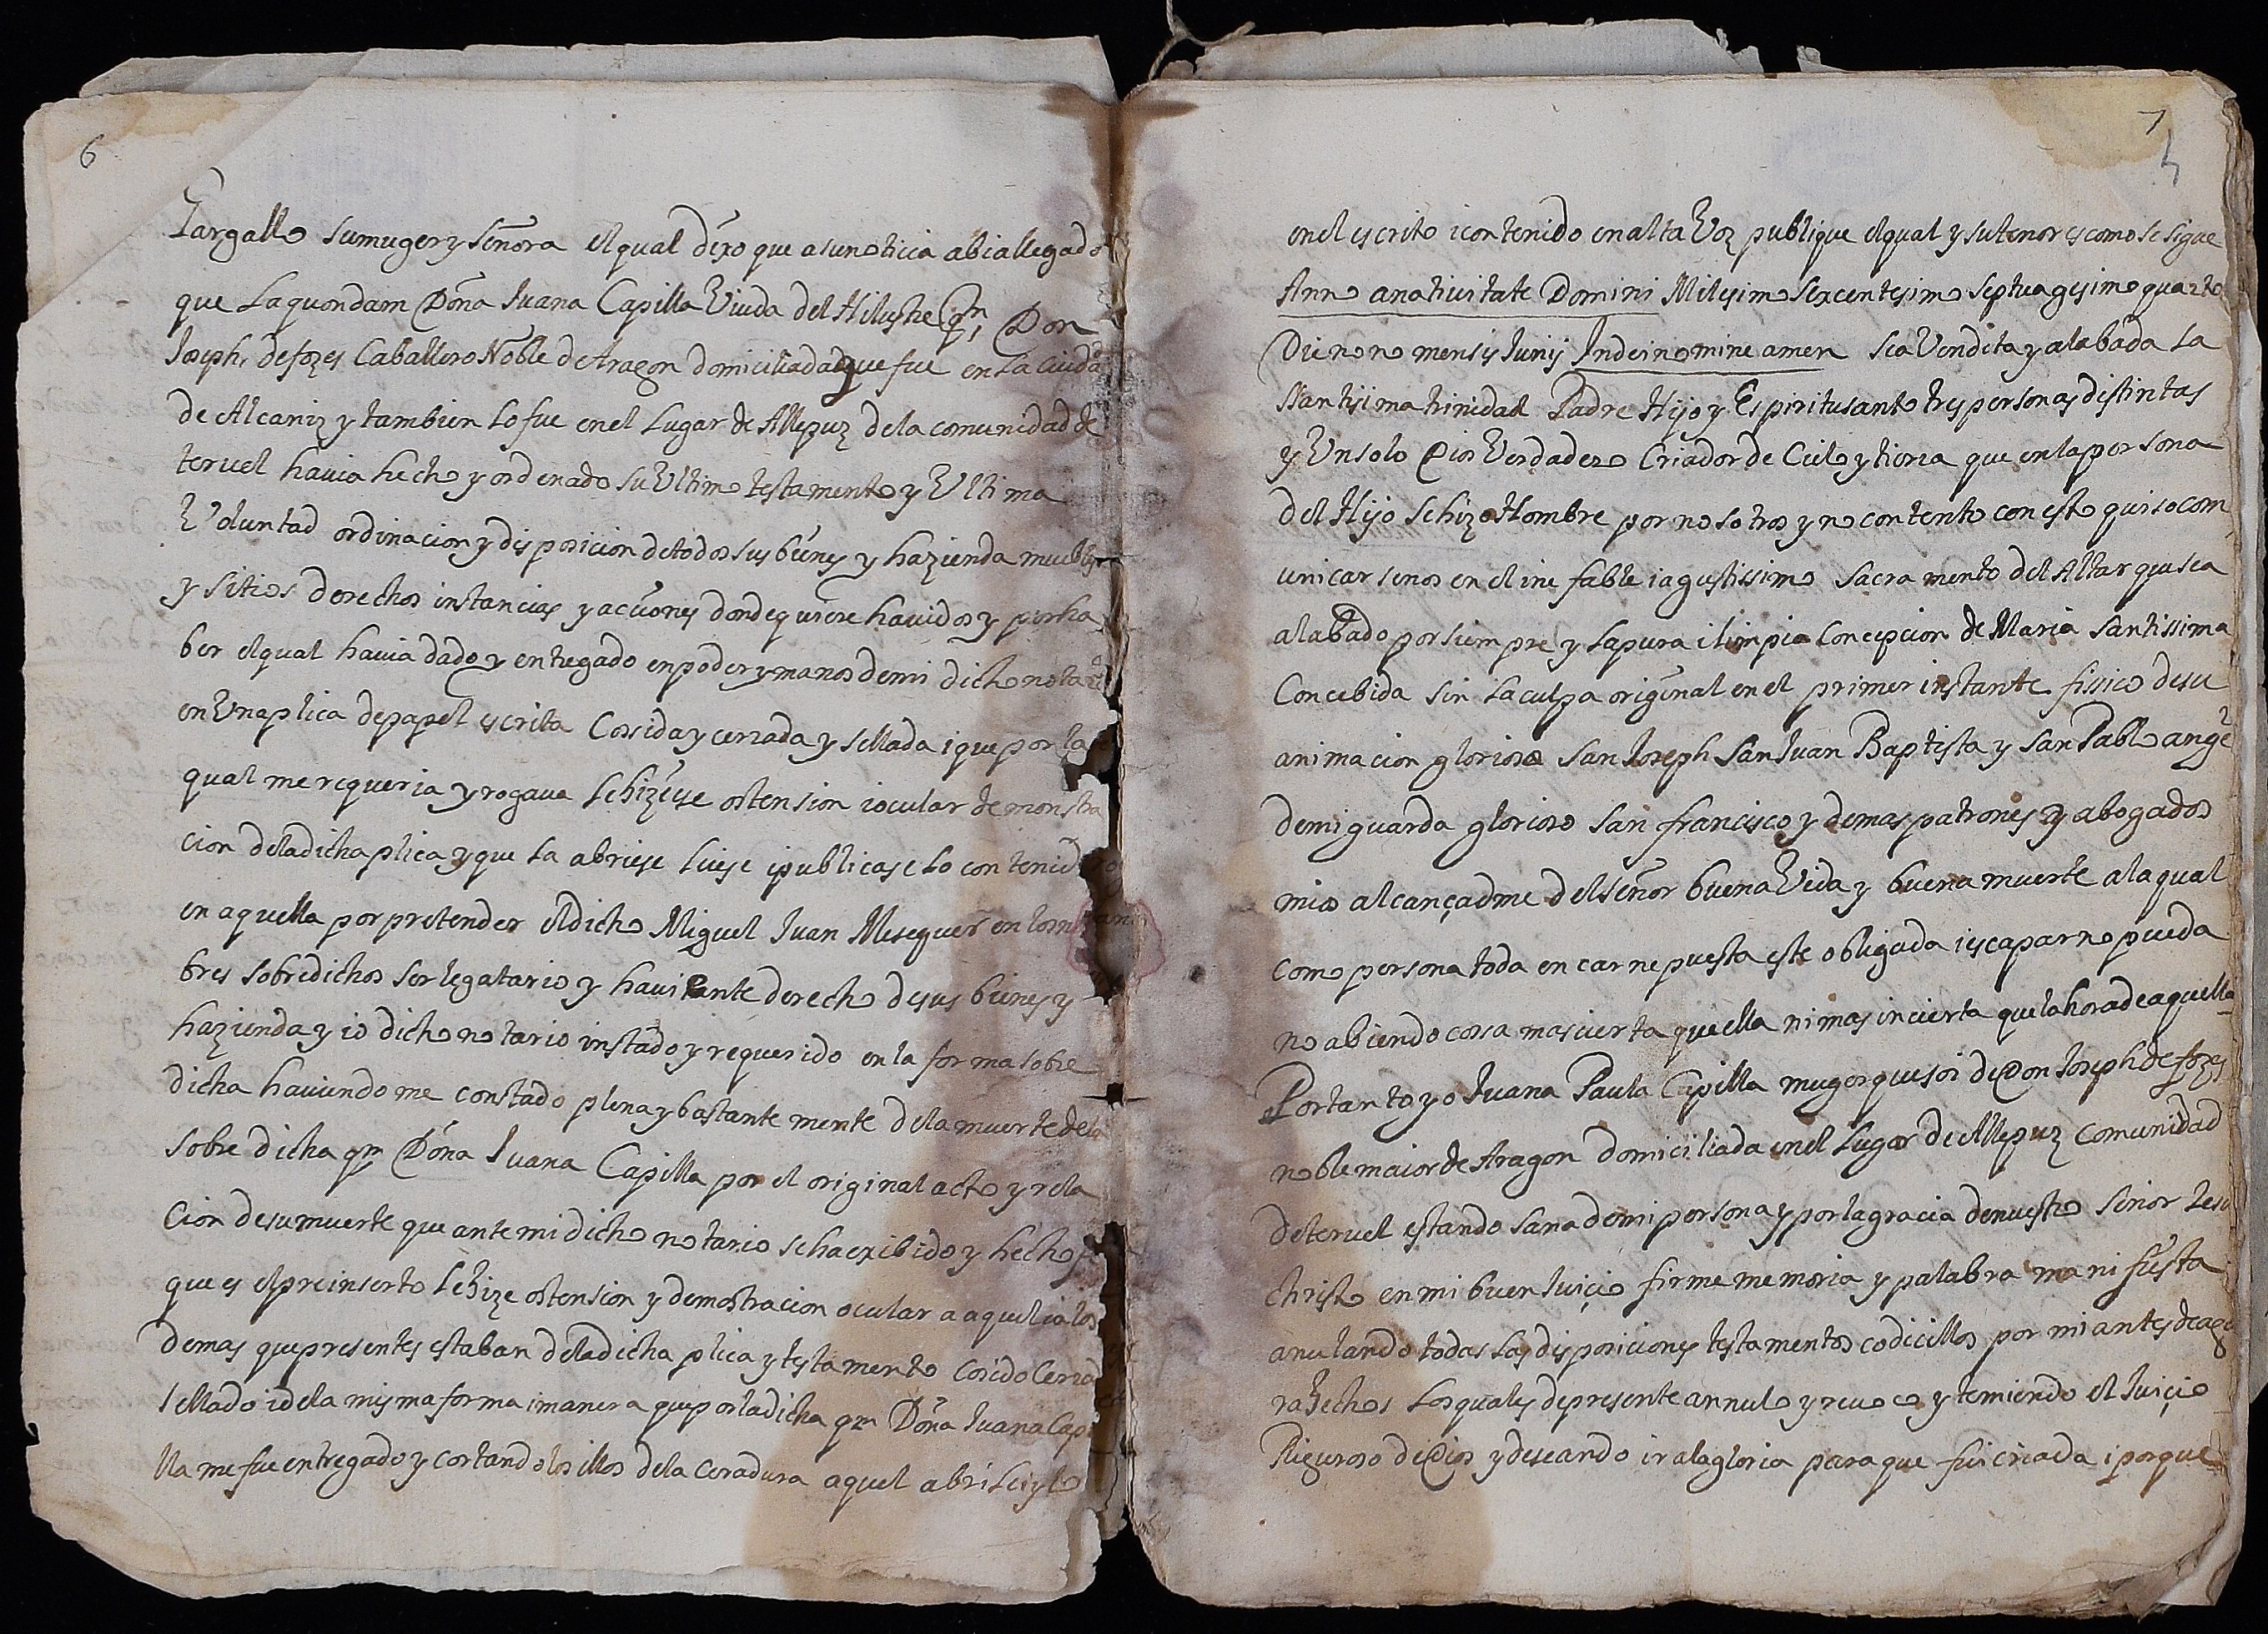 6
Gargallo su muger y Señora el qual dixo que a su noticia abia llegado
que La quondam Doña Juana Capilla Viuda del Ilustre qm, Don
Joseph, de fozes Caballero Noble de Aragon domiciliada que fue en La ciuda
de Alcaniz y tambien Lo fue en el Lugar de Allepuz de la comunidad de
teruel havia hecho y ordenado su Ultimo testamento y Ultima
Voluntad ordinacion y disposicion de todos sus bienes y hazienda muebles
y sitios derechos instancias y acciones donde quiere havidos y por ha
ber el qual havia dado y entregado en poder y manos de mi dicho notario
en Una plica de papel escrita Cosida y cerrada y sellada i que por la
qual me requeria y rogava Le hiziese ostension i ocular demonstra
cion de la dicha plica y que La abriese Luiese i publicase Lo contenido
en aquella por pretender el dicho Miguel Juan Meseguer en los
bres sobredichos ser legatario y haviente derecho de sus bienes y
hazienda y io dicho notario instado y requerido en la forma sobre
dicha haviendo me constado plena y bastante mente de la muerte de la
sobre dicha qm Doña Juana Capilla por el original acto y rela
cion de su muerte que ante mi dicho notario se ha exibido y hecho
que es el preinserto Le hize ostension y demostracion ocular a aquel i a los
demas que presentes estaban de la dicha plica y testamento Cosido Cerra
sellado i de la misma forma i manera que por la dicha qm Doña Juana Capi
lla me fue entregado y cortando los illos de la ceradura aquel abri Lei y lo
7
en el escrito i contenido en alta Voz publique el qual y su tenor es como se sigue
Anno a nativitate Domini Milesimo sexcentesimo septuagesimo quarto
Die nono mensis Junij In dei nomine amen sea Vendita y alabada La
Santisima trinidad Padre Hijo y Espiritu santo tres personas distintas
y Un solo Dios Verdadero Criador de Cielo y tierra que en la persona
del Hijo se hizo Hombre por nosotros y no contento con esto quiso com
unicarsenos en el inefable i agustissimo Sacramento del Altar que sea
alabado por siempre y La pura i limpia Concepcion de Maria Santissima
Concebida sin La culpa original en el primer instante fissico de su
animacion glorioso San Joseph San Juan Baptista y San Pablo angel
de mi guarda glorioso San francisco y demas patrones y abogados
mios alcançadme del señor buena Vida y buena muerte a la qual
como persona toda en carne puesta este obligada i escapar no pueda
no abiendo cossa mas cierta que ella ni mas incierta que la hora de aquella
Por tanto yo Juana Paula Capilla muger que soi de Don Joseph de fozes
noble maior de Aragon domiciliada en el Lugar de Allepuz comunidad
de teruel estando sana de mi persona y por la gracia de nuestro señor Jesu
christo en mi buen Juiçio firme memoria y palabra manifiesta
anulando todas Las disposiciones testamentos codicillos por mi antes de ago
ra hechos Los quales de presente annulo y revoco y temiendo el Juiçio
Riguroso de Dios y deseando ir a la gloria para que fui criada i porque